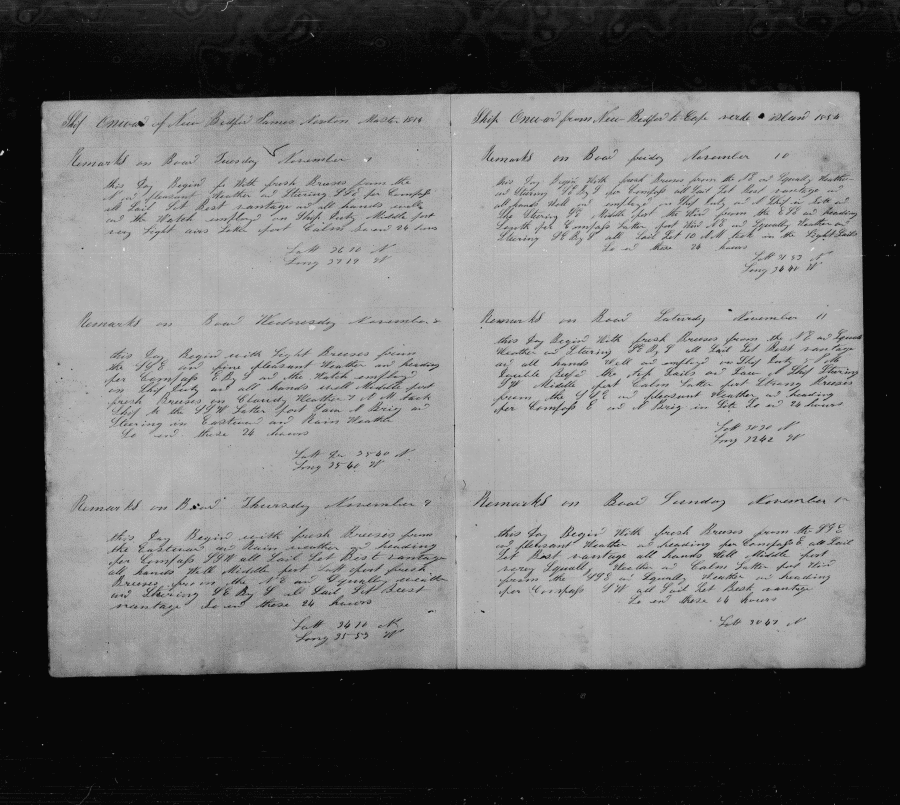 Ship Onward of New Bedford James Norton Master
Remarks on Board Tuesday November 7
this Day Begin With fresh Breeses from the
N an pleasant Weather an Stering for Compass
all Sail Set Best vantage an all hands well
an the Watch employd on Ship Duty Middle port
very Light airs Latter port Calm So end 24 hours
Latt 36 10 N
Long W
Remarks on Board Wednesday November 8
this Day Begin with Light Breeses from
the SSE an fine pleasant Weather an heading
per Compass E By S an the Watch employd
on Ship Duty an all hands well Middle port
fresh Breeses an Cloudy Weather AM tack
Ship to the SSW Latter port Saw A Brig an
Steering in Eastward an Rain Weather
So end these 24 hours
Latt 35 40 N
Long 35 40 W
Remarks on Board Thursday November 9
this Day Begin with fresh Breeses from
the Eastward an Rain weather an heading
per Compass SSW all Sail Set Best vantage
all hands Well Middle port Latt port fresh
Breeses from the NE an Squally weather
an Steering SE By S all Sail Set Best
vantage So end these 24 hours
Latt 34 10 N
Long 35 53 W
Ship Onward from New Bedford to Cape verde Island
Remarks on Board friday November 10
this Day Begin With fresh Breeses from the NE an Squally Weather
an Stering SE By S per Compass all Sail Set Best vantage an
all hands Well an employd on Ship Duty an A Ship in Site an
She Steering SE Middle port the Wind from the ESE an heading
South per Compass Latter port Wind NE an Squally Weather an
Steering SE By S all Sail Set 10 AM took in the Light Sails
So end these 24 hours
Latt 31 53 N
Long 34 40 W
Remarks on Board Saturday November 11
this Day Begin With fresh Breeses from the NE an Squally
Weather an Stering SE By S all Sail Set Best vantage
an all hands Well an employd on Ship Duty
Double Reef the Top Sails an Saw A Ship Stering
SW Middle port Calm Latter port Strong Breeses
from the SSE an pleasant Weather an heading
per Compass E an A Brig in Site So end 24 hours
Latt 30 30 N
Long 32 42 W
Remarks on Board Sunday November 12
this Day Begin With fresh Breeses from the SSE
an pleasant Weather an heading per Compass E all Sail
Set Best vantage all hands Well Middle port
very Squally Weather an Calm Latter port Wind
from the SSE an Squally Weather an heading
per Compass SW all Sail Set Best vantage
So end these 24 hours
Latt 30 47 N